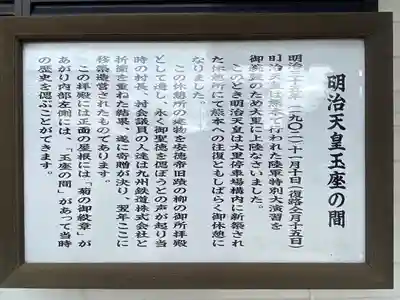 明治天皇玉座の間
明治三十五年(一九〇二)十一月十日(復路仝月十五日)
明治天皇は熊本で行われた陸軍特別大演習を
御統監のため大里に上陸なさいました。
このとき明治天皇は大里停車場構内に新築され
た休憩所にて熊本への往復ともしばらく御休憩に
なりました。
この休憩所の建物を安徳帝旧蹟の柳の御所拝殿
として遷し、永く御聖徳を偲ぼうとの声が起り当
時の村長、村会議員の人達は九州鉄道株式会社と
折衝を重ねた結果、遂に寄贈が決り、翌年ここに
移築造営されたものであります。
この拝殿には正面の屋根には「菊の御紋章」が
あがり内部左側には、「玉座の間」があって当時
の歴史を偲ぶことができます。